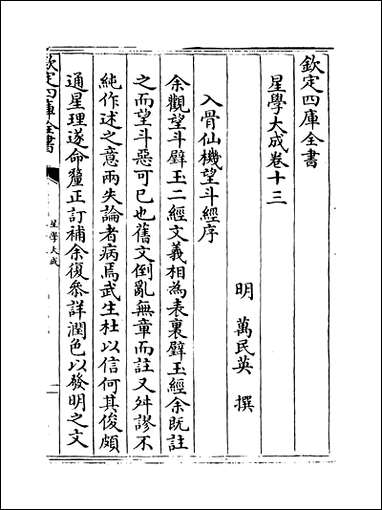 欽定四庫全書
星學大成卷十三
明 萬民英 撰
入骨仙機望斗經序
余觀望斗璧玉二經文義相為表裏璧玉經余既註
之而望斗惡可已也舊文倒亂無章而註又舛謬不
純作述之意兩失論者病焉武生杜以信何其俊頗
通星理遂命釐正訂補余復叅詳潤色以發明之文
欽定四庫全書
星學大成
一